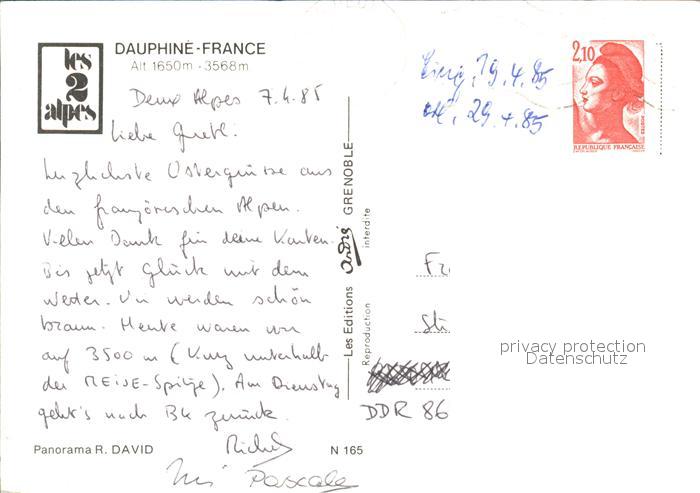 les
2
alpes
DAUPHINÉ-FRANCE
Alt. 1650m - 3568m
Deux Alpes 7.4.85
Liebe Gretl!
Herzlichste Ostergrüsse aus
den französischen Alpen.
Vielen Dank für deine Karten.
Bis jetzt Glück mit dem
Wetter. Wir werden schön
braun. Heute waren wir
auf 3500 m (Kurz unterhalb
der MEIJE-Spitze). Am Dienstag
geht's nach zurück.
Pascale
Panorama R. DAVID
N 165
Les Editions André GRENOBLE
Reproduction interdite
19.4.85
29.4.85
2,10
REPUBLIQUE FRANÇAISE
DDR 86
privacy protection
Datenschutz